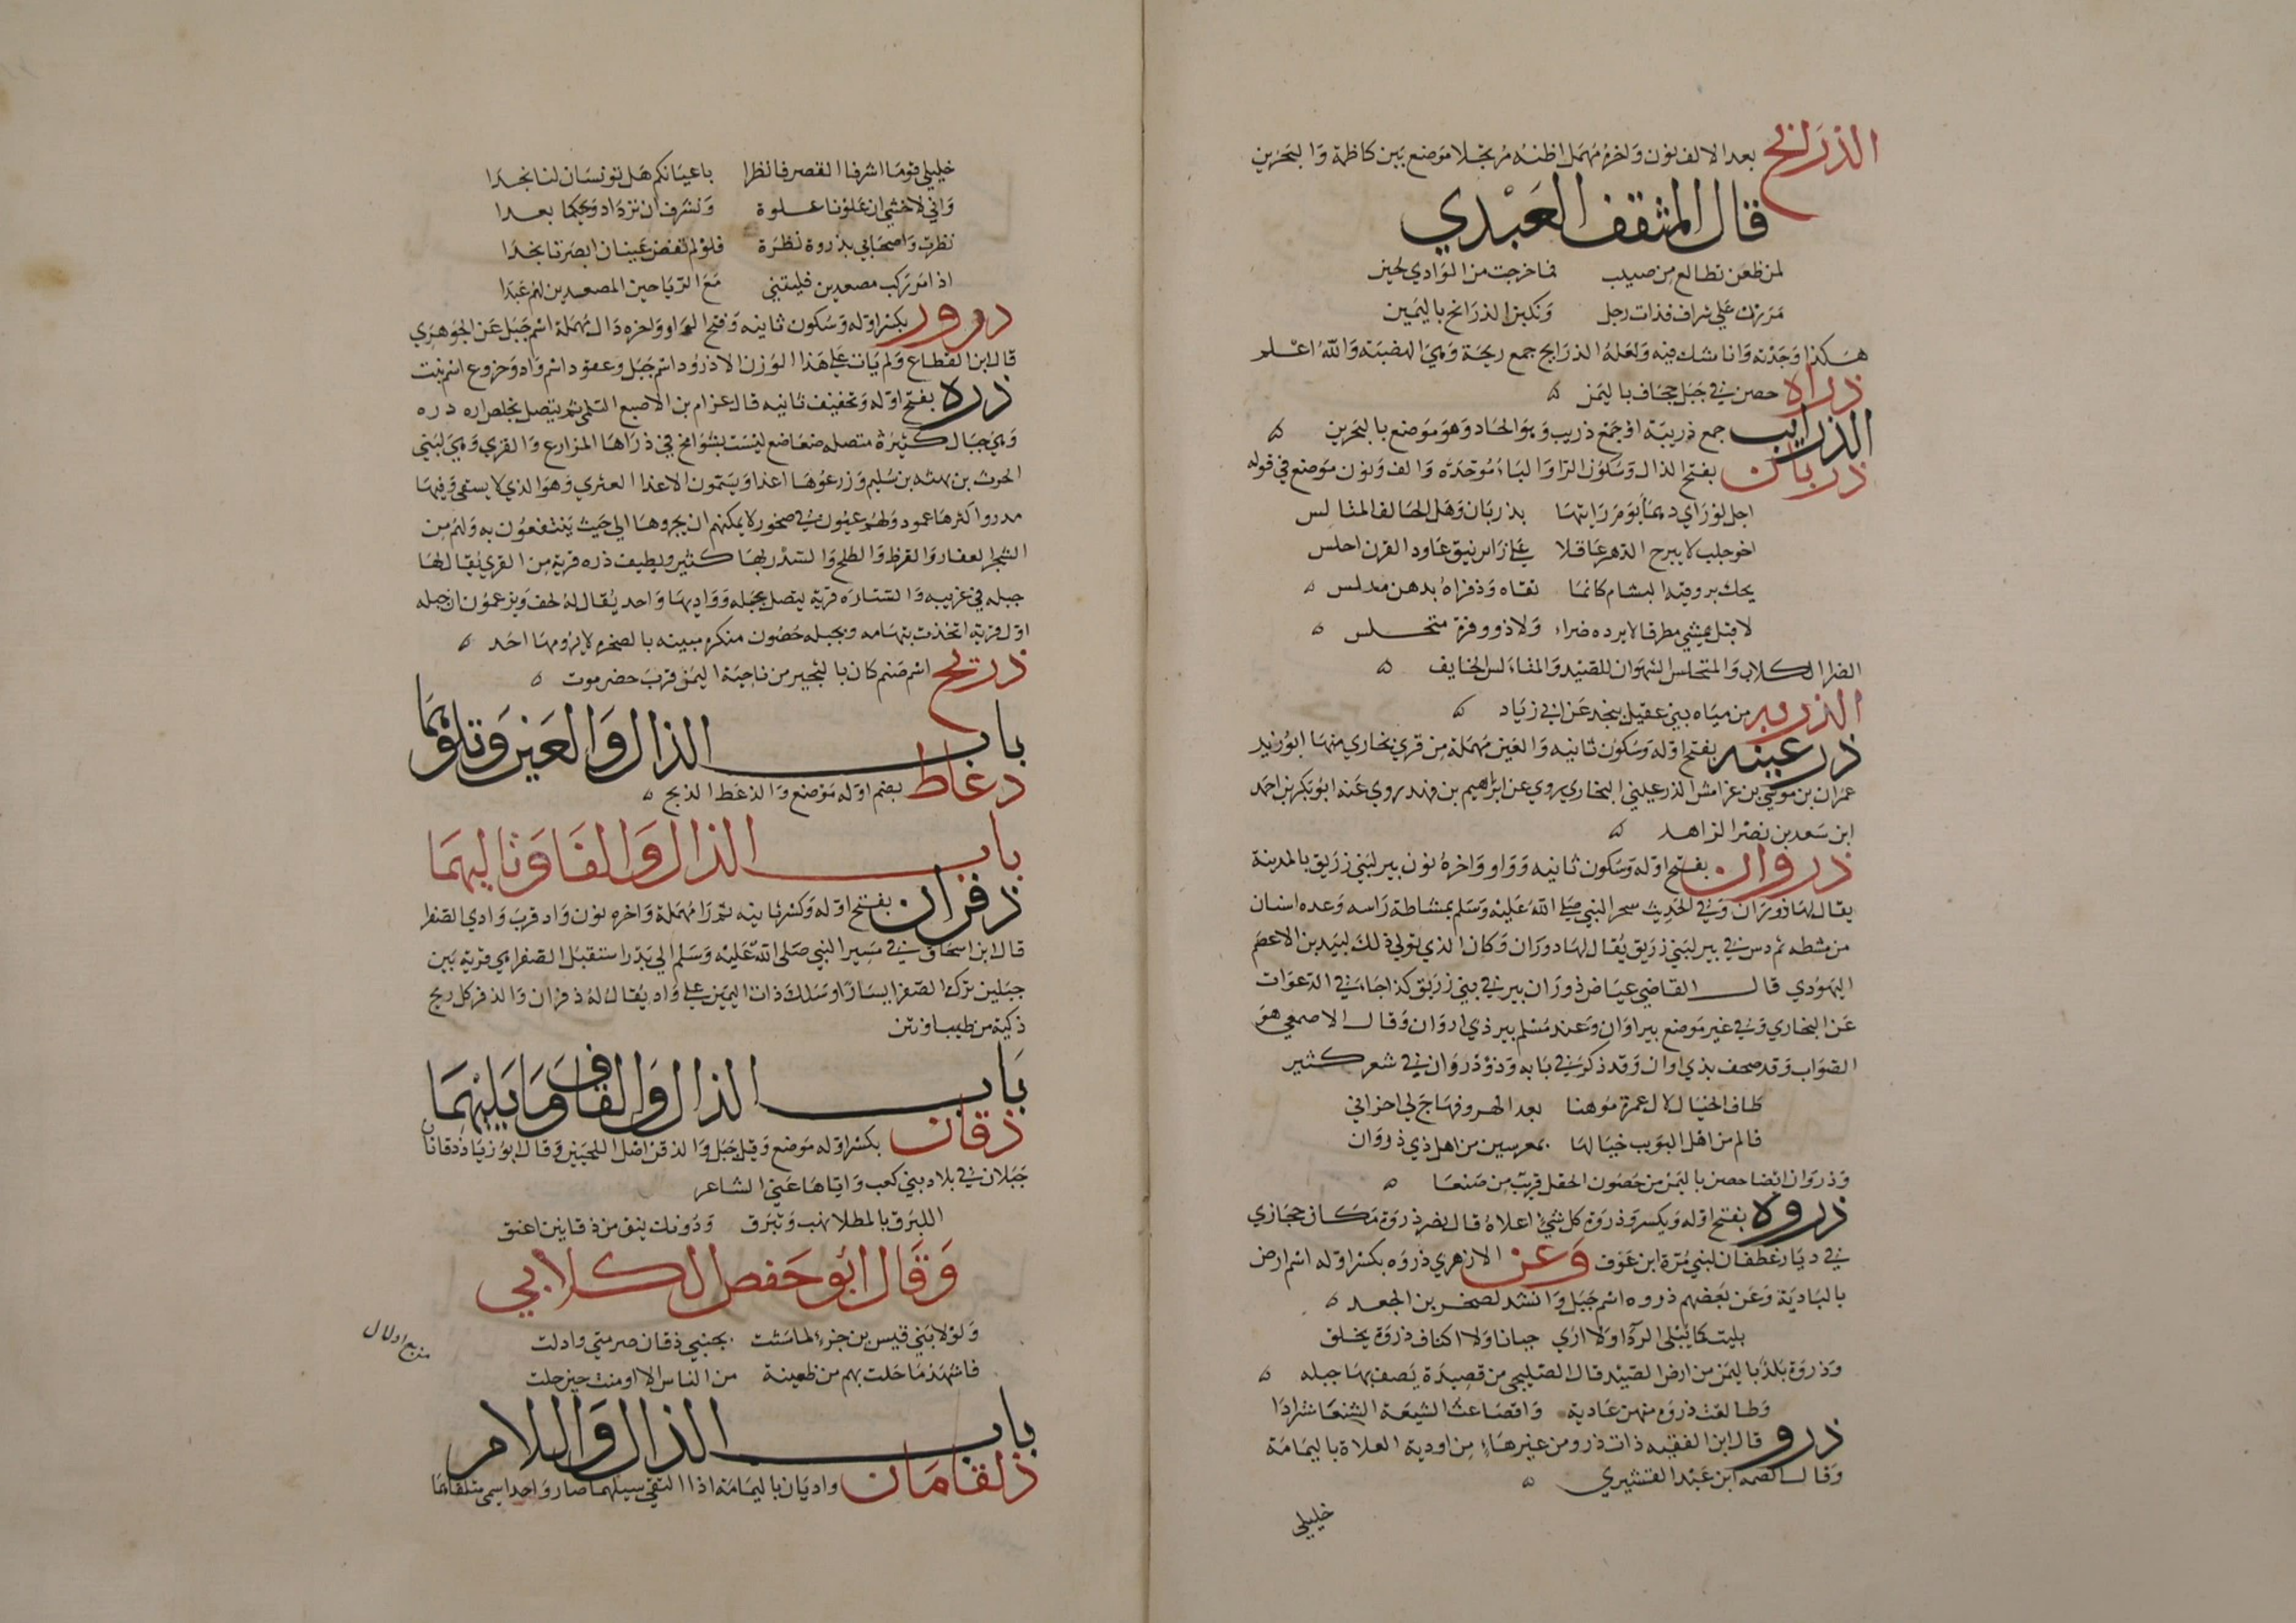 الذرانح بعد الالف نون واخره مهمل اظنه مرتجلا موضع بين كاظمة والبحرين
قال المثقف العبدي
لمن ظعن تطالع من صبيب فما خرجت من الوادي لحين
مررن على شراف فذات رجل ونكبن الذرانح باليمين
هكذا وجدته وانا شاك فيه ولعله الذرايح جمع ريحة وهي الهضبة والله اعلم
ذراه حصن في جبل جحاف باليمن
الذرايب جمع ذريبة او جمع ذريب وهو الحاد وهو موضع بالبحرين
ذربان بفتح الذال وسكون الرا والباء موحدة والف ونون موضع في قوله
اجل لو راي دهماء يوم رايتها بذربان وهل الخالف المتالس
اخو جلب لا يبرح الدهر عاقلا على راس نيق عاود القرن احلس
يحك بروقيه البشام كانما نقاه وذفراه بدهن مدلس
لاقبل يمشي مطرقا لا يرده ضراء ولا ذو وفرة متحلس
الضرا الكلاب والمتحلس الشهوان للصيد والمتالس الخايف
الذربه من مياه بني عقيل بنجد عن ابي زياد
ذرعينه بفتح اوله وسكون ثانيه والعين مهملة من قري بخاري منها ابو زيد
عمران بن موسي بن غرامش الذرعيني البخاري يروي عن ابراهيم بن فهد روي عنه ابو بكر بن احمد
ابن سعد بن نصر الزاهد
ذروان بفتح اوله وسكون ثانيه وواو واخره نون بير لبني زريق بالمدينة
يقال لها ذوران وفي الحديث سحر النبي صلى الله عليه وسلم بمشاطة راسه وعدة اسنان
من مشطه ثم دس في بير لبني زريق يقال لها دوران وكان الذي تولي ذلك لبيد بن الاعصم
اليهودي قال القاضي عياض ذوران بير في بني زريق كذا جاء في الدعوات
عن البخاري وفي غير موضع بير اوان وعند مسلم بير ذي اروان وقال الاصمعي هو
الصواب وقد صحف بذي اوان وقد ذكر في بابه وذو ذروان في شعر كثير
طاف الخيال لال عمرة موهنا بعد الهدو فهاج لي احزاني
فالم من اهل البويب خيالها بمعرسين من اهل ذي ذروان
وذروان ايضا حصن باليمن من حصون الحقل قريب من صنعا
ذروه بفتح اوله ويكسر وذروة كل شيء اعلاه قال نصر ذروة مكان حجازي
في ديار غطفان لبني مرة ابن عوف وعن الازهري ذروه بكسر اوله اسم ارض
بالبادية وعن بعضهم ذروه اسم جبل وانشد لصخر بن الجعد
بليت كما يبلي الرداء ولا اري جنانا ولا اكناف ذروة يخلق
وذروة بلد باليمن من ارض الصيد قال الصليحي من قصيدة يصف بها جبله
وطالعت ذروة منهن عادية وانصاعت الشيعة الشنعا شرادا
ذرو قال ابن الفقيه ذات ذرو من غير هاء من اودية العلاة باليمامة
وقال الصمه ابن عبد القشيري
خليلي
خليلي قوما اشرفا القصر فانظرا باعيانكم هل تونسان لنا نجدا
واني لاخشي ان علونا علوة ونشرف ان نزداد ويحكما بعدا
نظرت واصحابي بذروة نظرة فلو لم تفض عينان ابصرتا نجدا
اذا مر ركب مصعدين فليتني مع الريا حين المصعدين لهم عبدا
درور بكسر اوله وسكون ثانيه وفتح الواو واخره دال مهملة اسم جبل عن الجوهري
قال ابن القطاع ولم يات على هذا الوزن الا ذرود اسم جبل وعتود اسم واد وخروع اسم نبت
ذره بفتح اوله وتخفيف ثانيه قال عزام بن الاصبع السلمي ثم يتصل بخلص اره دره
وهي جبال كثيرة متصلة ضعاضع ليست بشوامخ في ذراها المزارع والقري وهي لبني
الحرث بن بهثه بن سليم وزروعها اعذا ويسمون الاعذا العثري وهو الذي لا يسقي وفيها
مدر واكثرها عمود ولهم عيون في صخور لا يمكنهم ان يجروها الي حيث ينتفعون به ولهم من
الشجر العفار والقرظ والطلح والسدر بها كثير ويطيف ذره قرية من القري يقال لها
جبله في غربيه والستاره قرية يتصل بجبله وواديها واحد يقال له لحف ويزعمون ان جبله
اول قرية اتخذت بتهامه وبجبله حصون منكره مبينه بالصخر لا يرومها احد
ذريح اسم صنم كان بالنجير من ناحية اليمن قرب حضرموت
باب الذال والعين وتلوهما
دغاط بضم اوله موضع والذعط الذبح
باب الذال والفا وتاليهما
ذفران بفتح اوله وكسر ثانيه ثم را مهملة واخره نون واد قرب وادي الصفرا
قال ابن اسحاق في مسير النبي صلى الله عليه وسلم الي بدر استقبل الصفرا وهي قرية بين
جبلين ترك الصفرا يسارا وسلك ذات اليمين على واد يقال له ذفران والذفر كل ريح
ذكية من طيب او نتن
باب الذال والقاف وما يليهما
ذقان بكسر اوله موضع وقيل جبل والذقن اصل اللحيين وقال ابو زياد ذقانان
جبلان في بلاد بني كعب واياها عني الشاعر
اللبرق بالمطلا تهب وتبرق ودونك نيق من ذقانين اعنق
وقال ابو حفص الكلابي
ولولا بني قيس بن جزء لما مشت بجنبي ذقان صرمتي وادلت
فاشهد ما حلت بهم من ظعينة من الناس الا اومنت حين حلت
باب الذال واللام
ذلقامان واديان باليمامة اذا التقي سيلهما صار واحدا سمي ملتقاهما